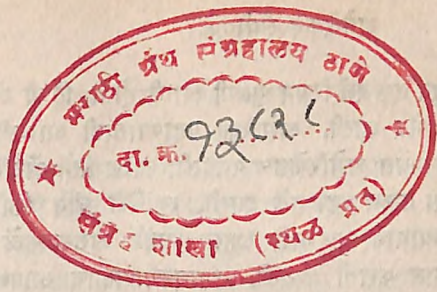 मराठी ग्रंथ संग्रहालय ठाणे
दा. क्र. १३८२८
संग्रह शाखा (स्थळ प्रत)